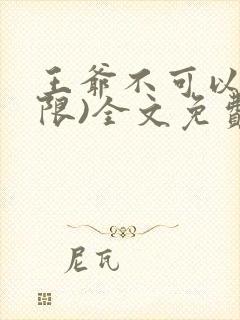 王爷不可以
限)全文免費
尼瓦